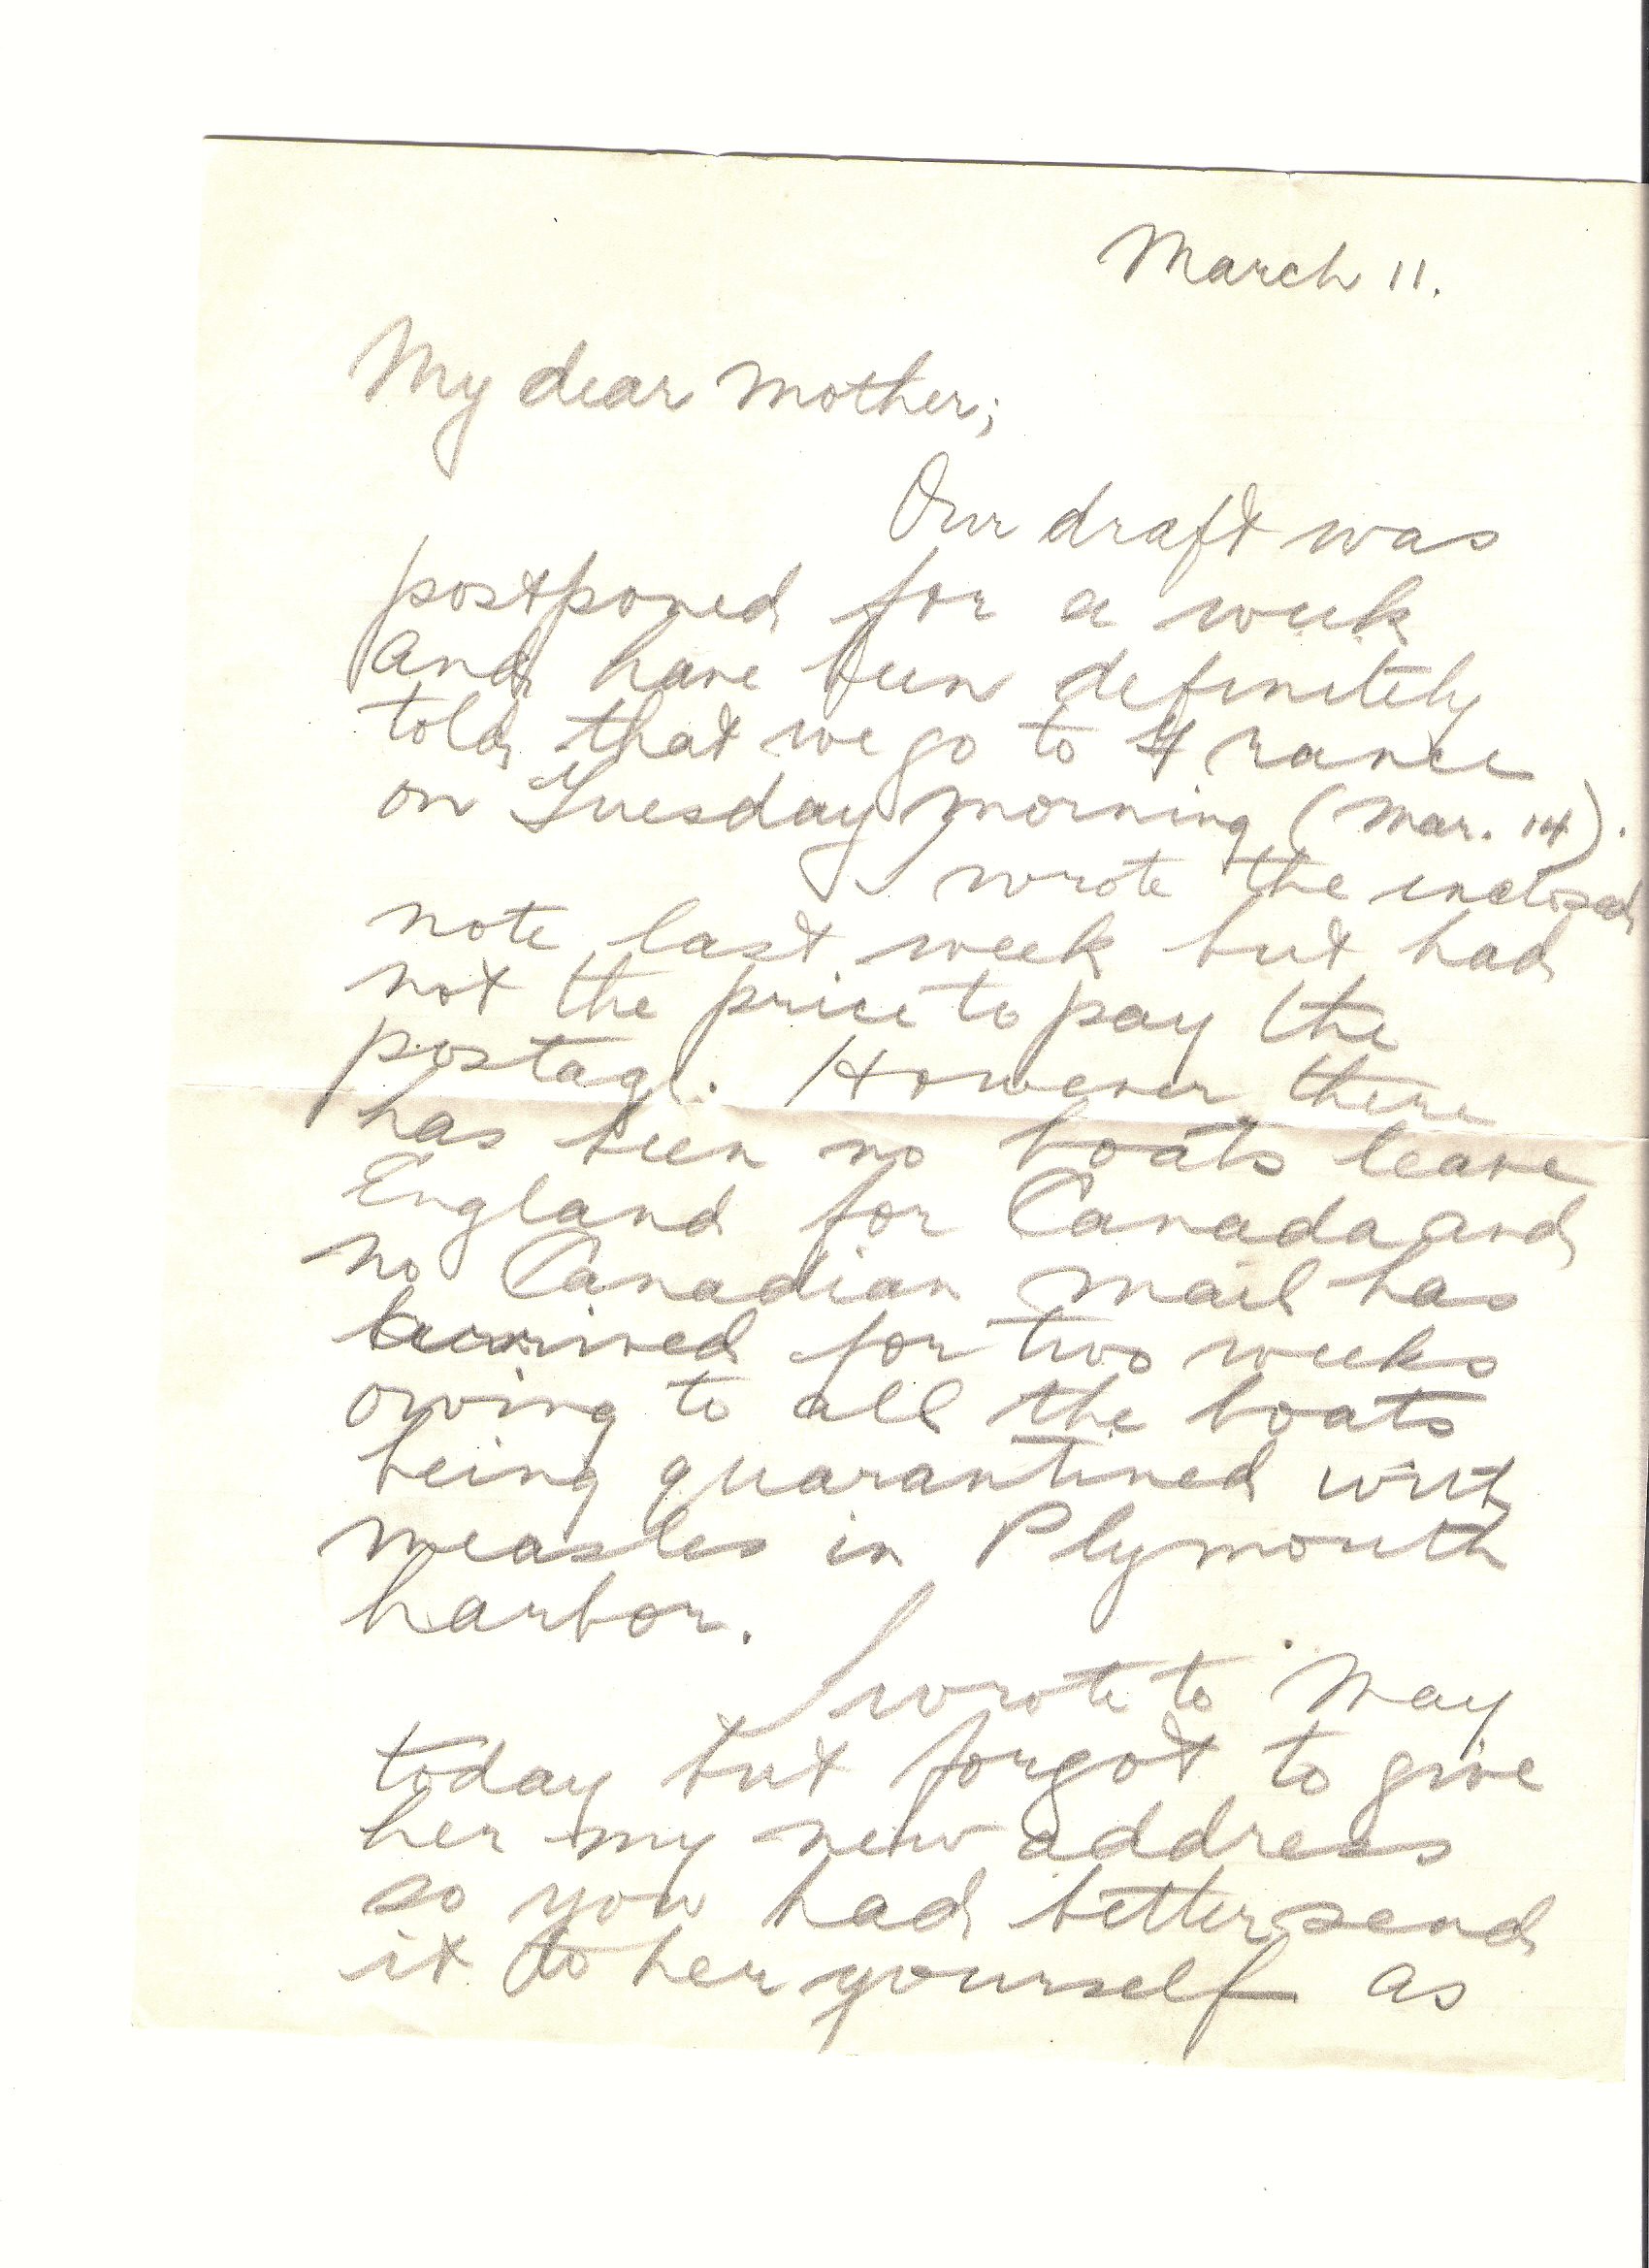 March 11.
My dear mother;
Our draft was
postponed for a week
and have been definitely
told that we go to France
on Tuesday morning (Mar. 14).
I wrote the enclosed
note last week but had
not the price to pay the
postage. However there
has been no boats leave
England for Canada and
no Canadian mail has
arrived for two weeks
owing to all the boats
being quarantined with
measles in Plymouth
harbor.
I wrote to May
today but forgot to give
her my new address
so you had better send
it to her yourself as